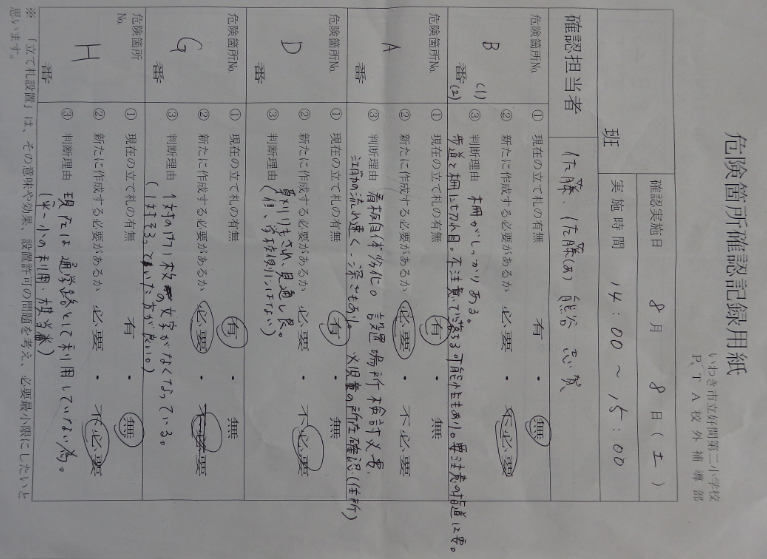 危険箇所確認記録用紙
いわき市立好間第二小学校
PTA校外補導部
確認実施日 8月 8日(土)
班 実施時間 14:00~15:00
確認担当者 佐藤、佐藤(あ) 熊谷 志賀
危険箇所No. B 番 (1) (2)
① 現在の立て札の有無 有・無
② 新たに作成する必要があるか 必要・不必要
③ 判断理由 柵がしっかりある。
歩道と柵に切れ目。不注意で落ちる可能性もあり。要注意の指導は要。
危険箇所No. A 番
① 現在の立て札の有無 有・無
② 新たに作成する必要があるか 必要・不必要
③ 判断理由 看板自体劣化。設置場所検討必要
流れ速く、深さもあり。 児童の所在確認(住所)
危険箇所No. D 番
① 現在の立て札の有無 有・無
② 新たに作成する必要があるか 必要・不必要
③ 判断理由 草刈りをされ見通し良。
危険箇所No. G 番
① 現在の立て札の有無 有・無
② 新たに作成する必要があるか 必要・不必要
③ 判断理由 1対の内1枚の文字がなくなっている。
危険箇所No. H 番
① 現在の立て札の有無 有・無
② 新たに作成する必要があるか 必要・不必要
③ 判断理由 現在は通学路として利用していない為。
※ 「立て札設置」は、その意味や効果、設置許可の問題を考え、必要最小限にしたいと
思います。